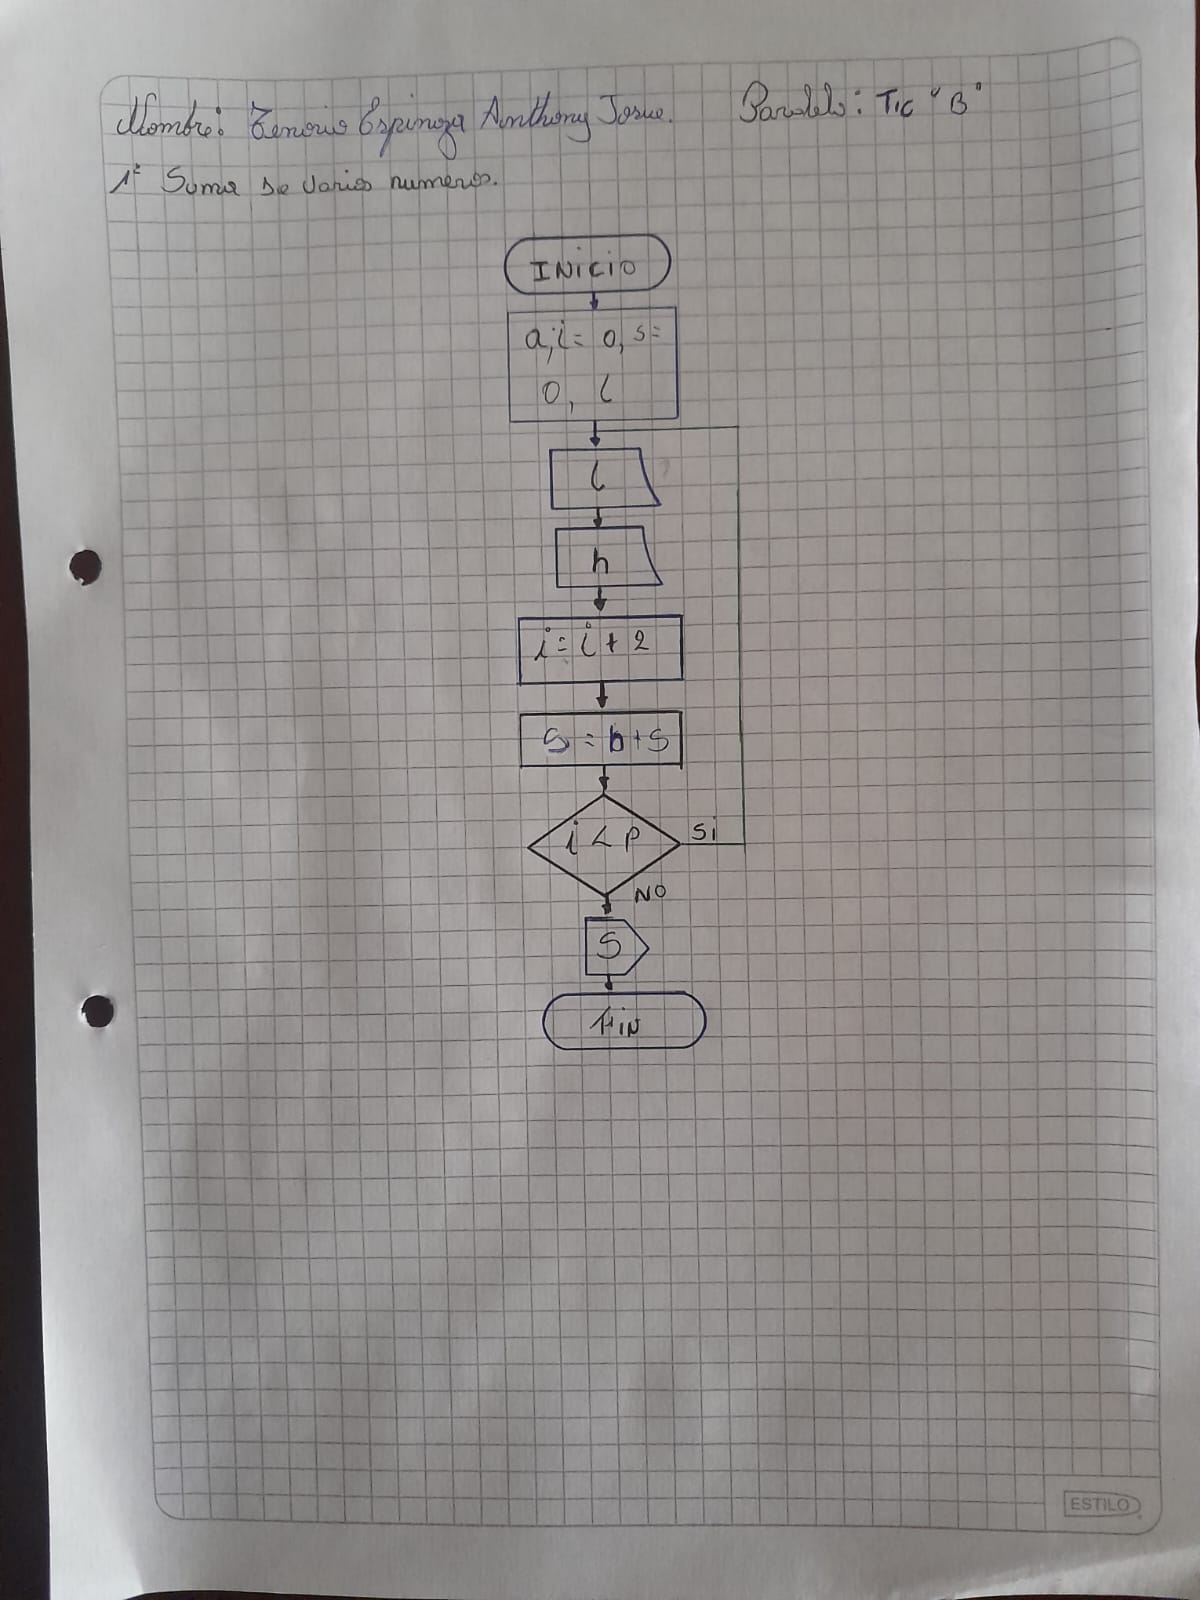 Nombre: Tenorio Espinoza Anthony Josue. Paralelo: Tic "B"
1º Suma de varios numeros.
INICIO
a, i = 0, s =
0, l
l
h
i = i + 2
S = h + S
i < p
Si
NO
S
Fin
ESTILO